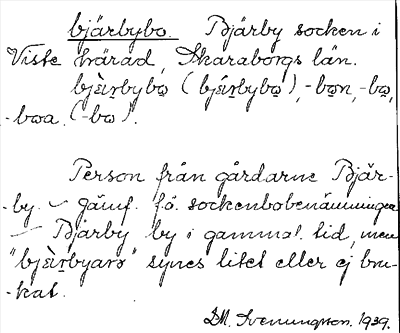 bjärbybo. Bjärby socken i
Viste härad, Skaraborgs län.
bjæ̀rbybo̲ (bjǽrbybo̲), -bo̲n, -bo̲,
-boa. (-bo).
Person från gårdarne Bjär-
by. – jämf. fö. sockenbobenämningen
– Bjärby by i gammal tid, men
"bjæ̀rbyarə" synes litet eller ej bru-
kat.
D.M. Svenungsson. 1939.